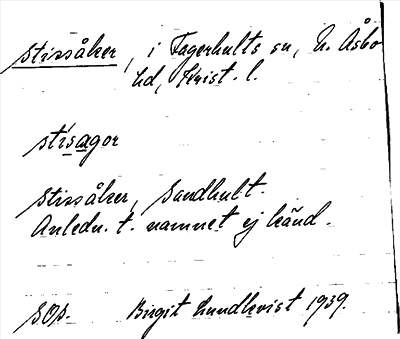 Stissåker, i Fagerhults sn, N. Åsbo
hd, Krist. l.
stisagor
Stissåker, Sandhult.
Anledn. t. namnet ej känd.
S.O.S. Birgit Lundkvist 1939.